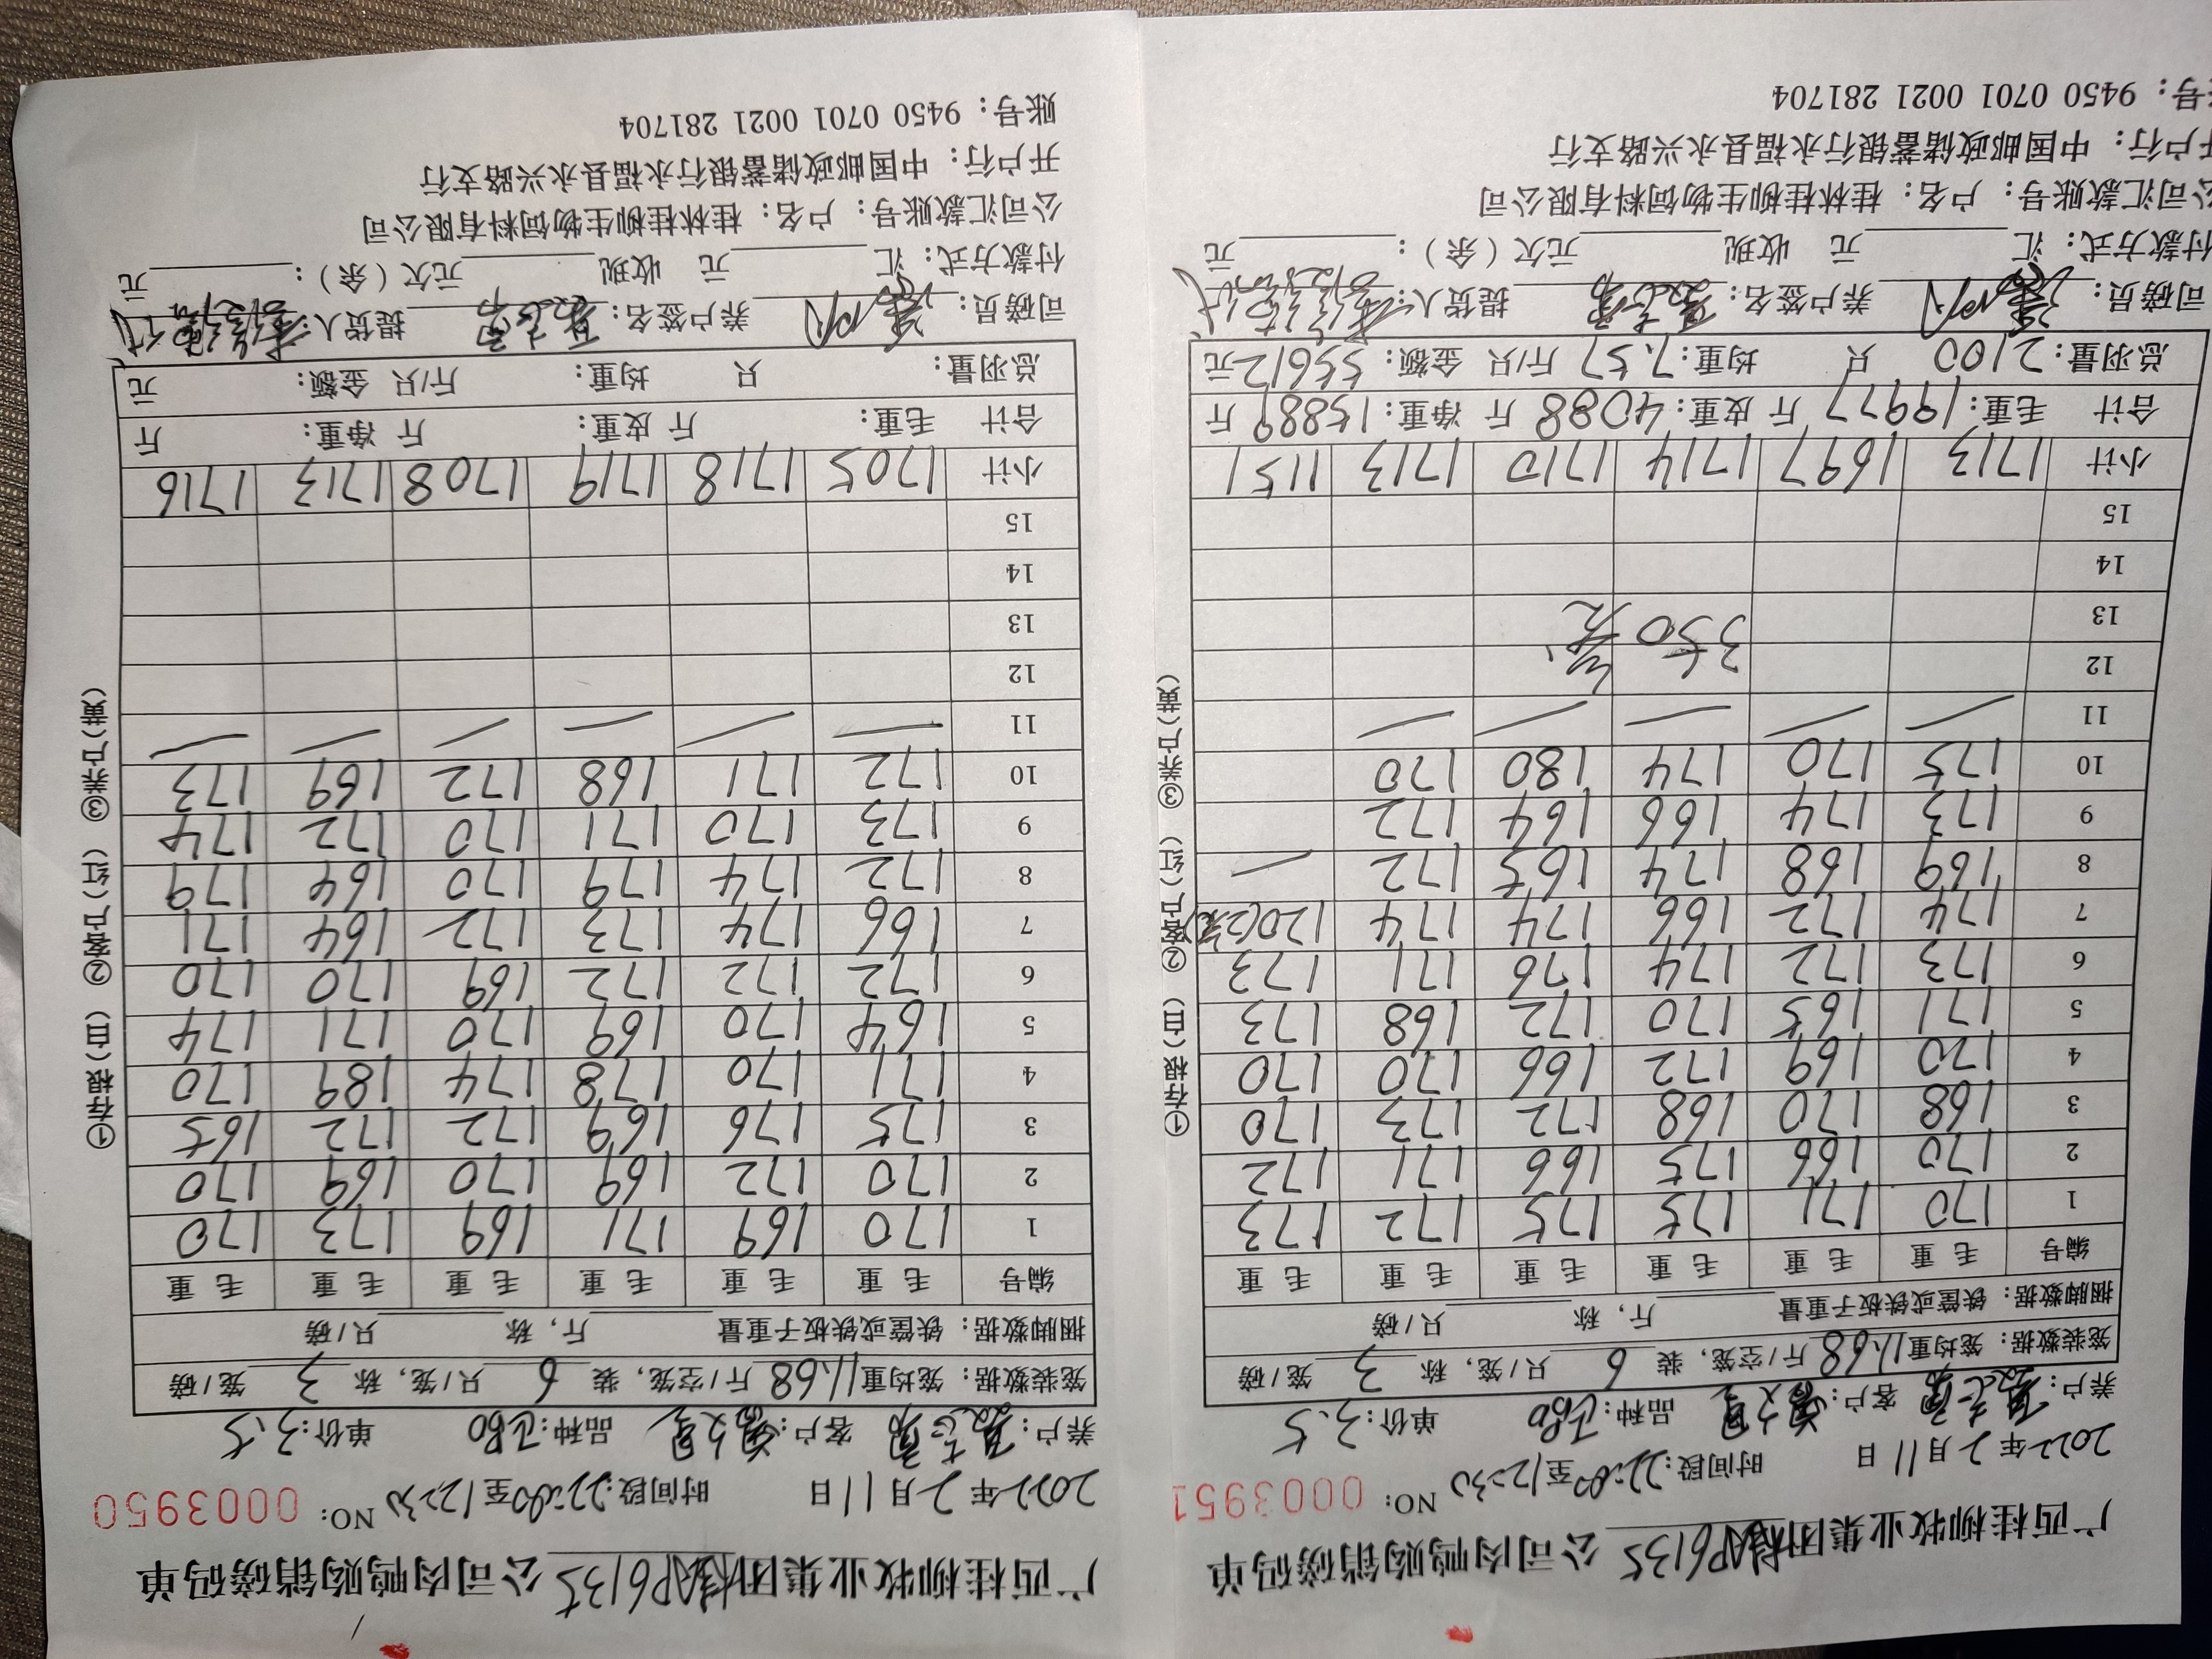 广西桂柳牧业集团桂AP6135公司肉鸭购销磅码单
2022年2月11日 时间段:22:00至12:30 NO: 0003951
养户: 客户: 品种: 单价:3.5
笼装数据: 笼均重11.68斤/空笼, 装 6 只/笼, 称 3 笼/磅
捆脚数据: 铁筐或铁板子重量 斤, 称 只/磅
编号 毛重 毛重 毛重 毛重 毛重 毛重
1 170 171 175 175 172 173
2 170 166 175 166 171 172
3 168 170 168 172 173 170
4 170 169 172 166 170 170
5 171 165 170 172 168 173
6 173 172 174 176 171 173
7 174 172 166 174 174 120(2笼)
8 169 168 174 165 172
9 173 174 166 164 172
10 175 170 174 180 170
11
12
13 350 笼
14
15
小计 1713 1697 1714 1710 1713 1151
合计 毛重:19977斤 皮重:4088斤 净重:15889斤
总羽量:2100只 均重:7.57斤/只 金额:55612元
司磅员: 养户签名: 提货人:
付款方式: 汇 元 收现 元欠(余): 元
公司汇款账号: 户名: 桂林桂柳生物饲料有限公司
开户行: 中国邮政储蓄银行永福县永兴路支行
账号: 9450 0701 0021 281704
①存根(白) ②客户(红) ③养户(黄)
广西桂柳牧业集团桂AP6135公司肉鸭购销磅码单
2022年2月11日 时间段:22:00至12:30 NO: 0003950
养户: 客户: 品种: 单价:3.5
笼装数据: 笼均重11.68斤/空笼, 装 6 只/笼, 称 3 笼/磅
捆脚数据: 铁筐或铁板子重量 斤, 称 只/磅
编号 毛重 毛重 毛重 毛重 毛重 毛重
1 170 169 171 169 173 170
2 170 172 169 170 169 170
3 175 176 169 172 172 165
4 171 170 178 174 189 170
5 164 170 169 170 171 174
6 172 172 172 169 170 170
7 166 174 173 172 164 171
8 172 174 179 170 164 179
9 173 170 171 170 172 174
10 172 171 168 172 169 173
11
12
13
14
15
小计 1705 1718 1719 1708 1713 1716
合计 毛重: 斤 皮重: 斤 净重: 斤
总羽量: 只 均重: 斤/只 金额: 元
司磅员: 养户签名: 提货人:
付款方式: 汇 元 收现 元欠(余): 元
公司汇款账号: 户名: 桂林桂柳生物饲料有限公司
开户行: 中国邮政储蓄银行永福县永兴路支行
账号: 9450 0701 0021 281704
①存根(白) ②客户(红) ③养户(黄)